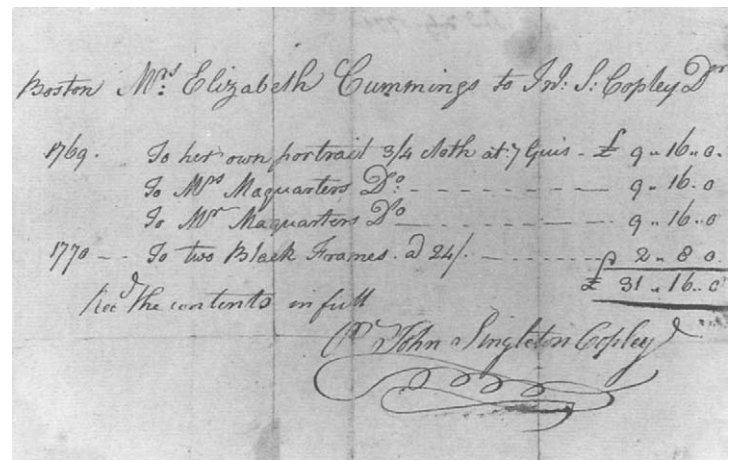 Boston Mrs: Elizabeth Cummings to Jno: S: Copley Dr
1769. To her own portrait 3/4 cloth at 7 Guis - £ 9.. 16.. 0.
To Mrs Maquarters Do: - - - - 9.. 16.. 0
To Mr Maquarters Do - - - - 9.. 16.. 0
1770 - - To two Black Frames. a 24/. - - - - 2.. 8 0.
£ 31.. 16.. 0
Recd the contents in full
Pr John Singleton Copley